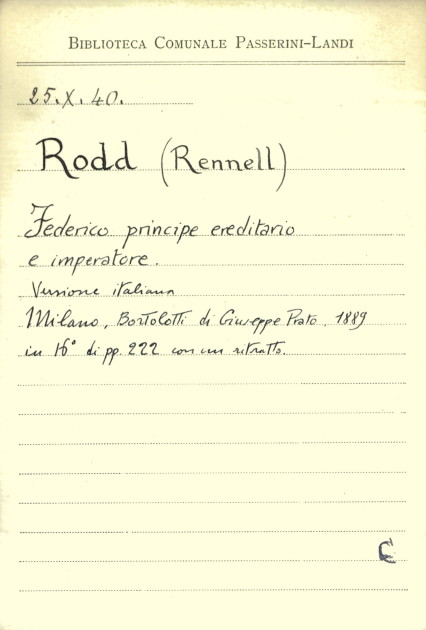 BIBLIOTECA COMUNALE PASSERINI-LANDI
25.X.40.
Rodd (Rennell)
Federico principe ereditario
e imperatore.
Versione italiana
Milano, Bortolotti di Giuseppe Prato, 1889
in 16° di pp. 222 con un ritratto.
C